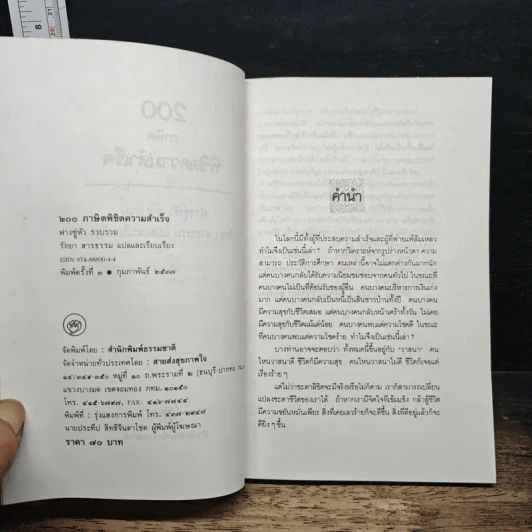 ๒๐๐ ภาษิตพิชิตความสำเร็จ
ฟางซู่หัว รวบรวม
รัถยา สารธรรม แปลและเรียบเรียง
ISBN 974-88800-4-4
พิมพ์ครั้งที่ ๓ ● กุมภาพันธ์ ๒๕๓๗
จัดพิมพ์โดย : สำนักพิมพ์ธรรมชาติ
จัดจำหน่ายทั่วประเทศโดย : สายส่งสุขภาพใจ
๑๔/๓๔๙-๓๕๐ หมู่ที่ ๑๐ ถ.พระรามที่ ๒ (ธนบุรี-ปากท่อ
แขวงบางมด เขตจอมทอง กทม. ๑๐๑๕๐
โทร. ๔๑๕-๒๗๙๗, FAX:
พิมพ์ที่ : รุ่งแสงการพิมพ์ โทร. ๔๗๗-๒๙๔๗
นายประทีป สิทธิจินดาโชค ผู้พิมพ์ผู้โฆษณา
ราคา ๗๐ บาท
คำนำ
ในโลกนี้มีทั้งผู้ที่ประสบความสำเร็จและผู้ที่พ่ายแพ้ล้มเหลว
ทำไมจึงเป็นเช่นนี้เล่า? ถ้าหากวิเคราะห์จากรูปร่างหน้าตา ความ
สามารถ ประวัติการศึกษา คนเหล่านี้อาจไม่แตกต่างกันมากนัก
แต่คนบางคนกลับได้รับความนิยมชมชอบจากคนทั่วไป ในขณะที่
คนบางคนไม่เป็นที่ต้อนรับของผู้อื่น คนบางคนบริหารการเงินเก่ง
มาก แต่คนบางคนกลับเป็นหนี้เป็นสินชาวบ้านทั้งปี คนบางคน
มีความสุขกับชีวิตเสมอ แต่คนบางคนกลับหน้าเศร้าทั้งวัน ไม่เคย
มีความสุขกับชีวิตแม้แต่น้อย คนบางคนพบแต่ความโชคดี ในขณะที่
คนบางคนพบแต่ความโชคร้าย ทำไมจึงเป็นเช่นนี้เล่า?
บางท่านอาจจะตอบว่า ทั้งหมดนี้ขึ้นอยู่กับ "วาสนา" คน
ไหนวาสนาดี ชีวิตก็มีความสุข คนไหนวาสนาไม่ดี ชีวิตก็เจอแต่
เรื่องร้ายๆ
แต่ไม่ว่าชะตาลิขิตจะมีจริงหรือไม่ก็ตาม เราก็สามารถเปลี่ยน
แปลงชะตาชีวิตของเราได้ ถ้าหากเรามีจิตใจที่เข้มแข็ง กล้าสู้ชีวิต
มีความขยันหมั่นเพียร สิ่งที่เคยเลวร้ายก็จะดีขึ้น สิ่งที่ดีอยู่แล้วก็จะ
ดียิ่งๆ ขึ้น